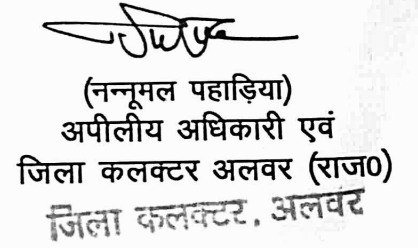 (नन्नूमल पहाड़िया)
अपीलीय अधिकारी एवं
जिला कलक्टर अलवर (राज0)
जिला कलक्टर, अलवर